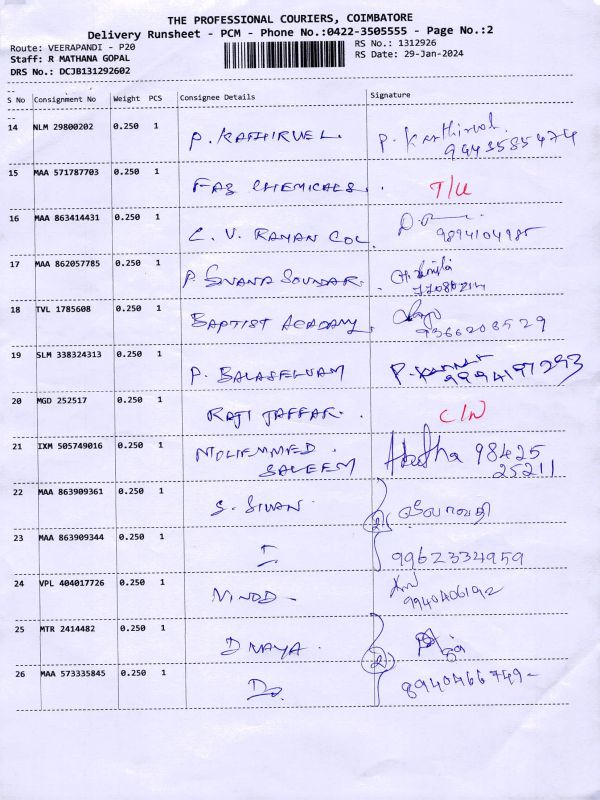 THE PROFESSIONAL COURIERS, COIMBATORE
Delivery Runsheet - PCM - Phone No.:0422-3505555 - Page No.:2
Route: VEERAPANDI - P20
RS No.: 1312926
Staff: R MATHANA GOPAL
RS Date: 29-Jan-2024
DRS No.: DCJB131292602
S No Consignment No Weight PCS Consignee Details Signature
14 NLM 29800202 0.250 1 P. KATHIRVEL. P. Kathirvel.
9443585474
15 MAA 571787703 0.250 1 FAB CHEMICALS. T/L
16 MAA 863414431 0.250 1 C. V. RAMAN COL
9894104985
17 MAA 862057785 0.250 1 P. SIVANA SOUNDAR.
18 TVL 1785608 0.250 1 BAPTIST ACADAMY.
9366208529
19 SLM 338324313 0.250 1 P. BALASELVAM P. Kannan
9994197293
20 MGD 252517 0.250 1 RAJI JAFFAR. C/N
21 IXM 505749016 0.250 1 MOHEMMED. 98425
SALEEM 25211
22 MAA 863909361 0.250 1 S. SIVAN
23 MAA 863909344 0.250 1
9962334959
24 VPL 404017726 0.250 1 VINOD -
9940406192
25 MTR 2414482 0.250 1 DNAYA.
26 MAA 573335845 0.250 1 Do.
8940466749-